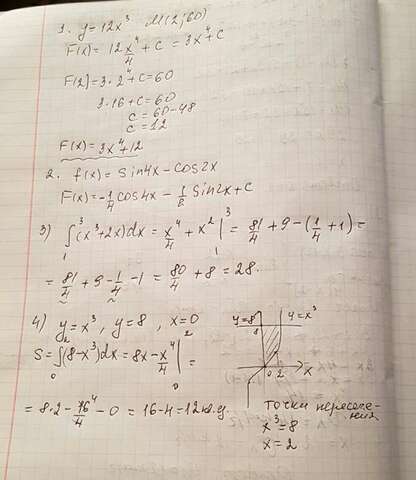 1. y = 12x³ M(2;60)
F(x) = 12x⁴/4 + C = 3x⁴ + C
F(2) = 3·2⁴ + C = 60
3·16 + C = 60
C = 60 - 48
C = 12
F(x) = 3x⁴ + 12
2. f(x) = sin4x - cos2x
F(x) = -1/4 cos4x - 1/2 sin2x + C
3) ∫₁³ (x³ + 2x)dx = x⁴/4 + x² |₁³ = 81/4 + 9 - (1/4 + 1) =
= 81/4 + 9 - 1/4 - 1 = 80/4 + 8 = 28.
4) y = x³, y = 8, x = 0
S = ∫₀² (8 - x³)dx = 8x - x⁴/4 |₀² =
= 8·2 - 16/4 - 0 = 16 - 4 = 12 кв.д.
y = 8 y = x³
8
0 2 x
точки пересече-
ния
x³ = 8
x = 2